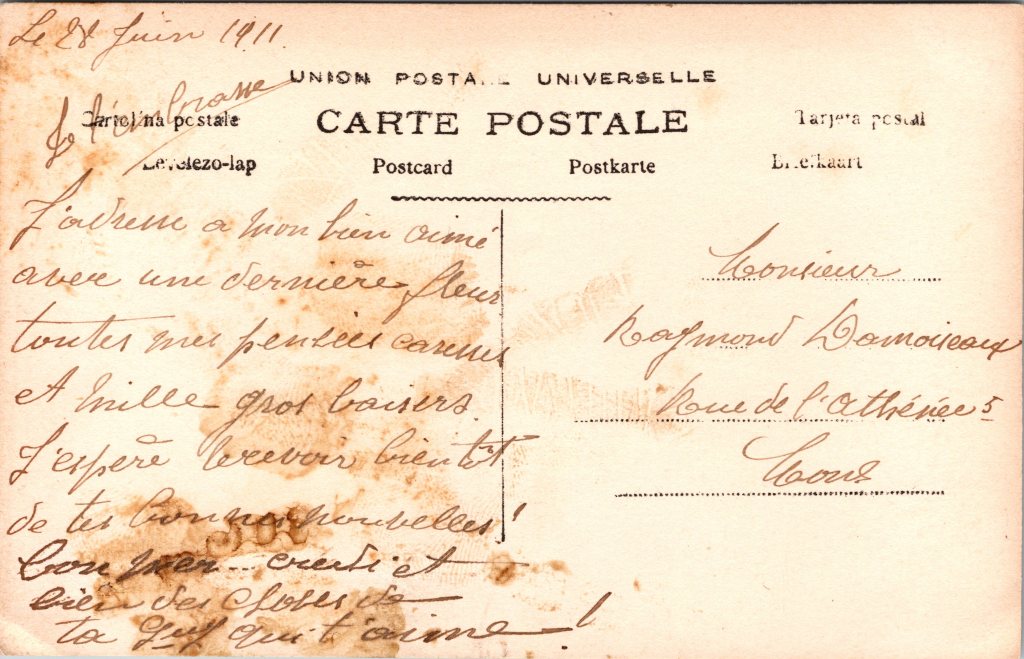 Le 28 Juin 1911.
Je t'embrasse
UNION POSTALE UNIVERSELLE
CARTE POSTALE
Cartolina postale
Tarjeta postal
Levelezo-lap
Postcard
Postkarte
Briefkaart
J'adresse a mon bien aimé
avec une dernière fleur
toutes mes pensées caresses
et mille gros baisers
J'espère recevoir bientôt
de tes bonnes nouvelles!
bon mercredi et
bien des choses de
ta qui t'aime!
Monsieur
Raymond Damoiseaux
Rue de l'Athénée 5
Mons